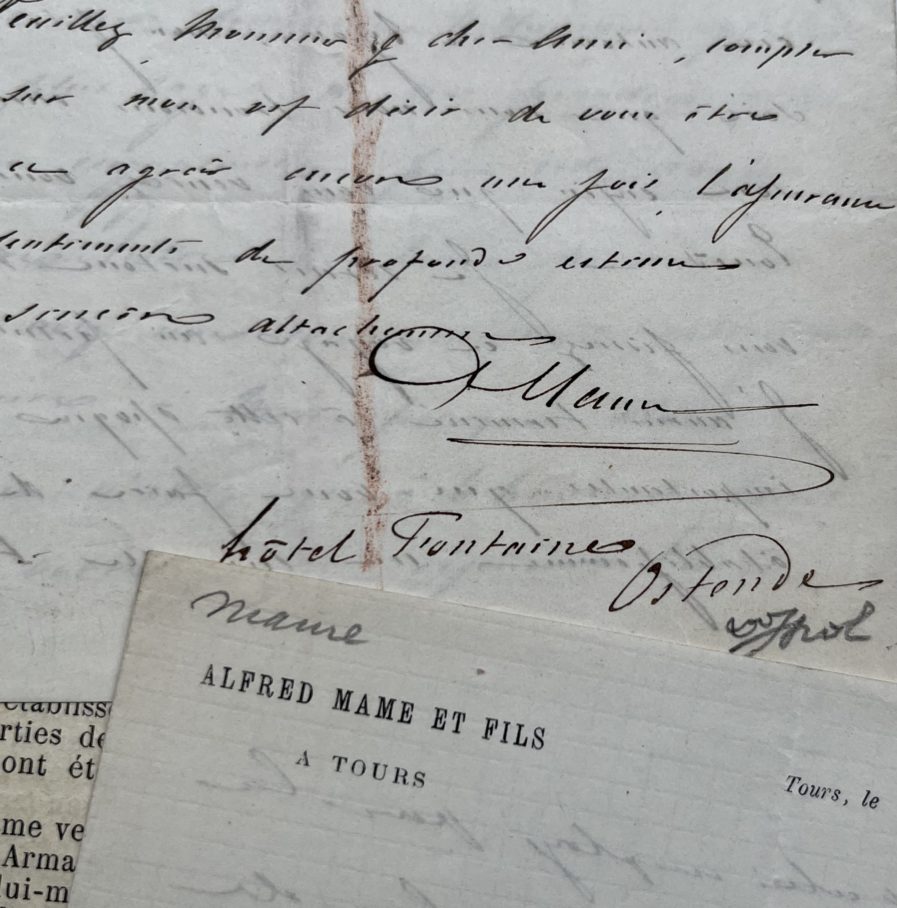 Veuillez, Monsieur & cher Ami, compter
sur mon vif désir de vous être
et agréer encore une fois, l'assurance
sentiments de profonde estime
sincère attachement
Mame
hôtel Fontaine
Ostende
Mame
ALFRED MAME ET FILS
A TOURS
Tours, le
établiss
rties de
ont ét
me ve
Arma
lui-m